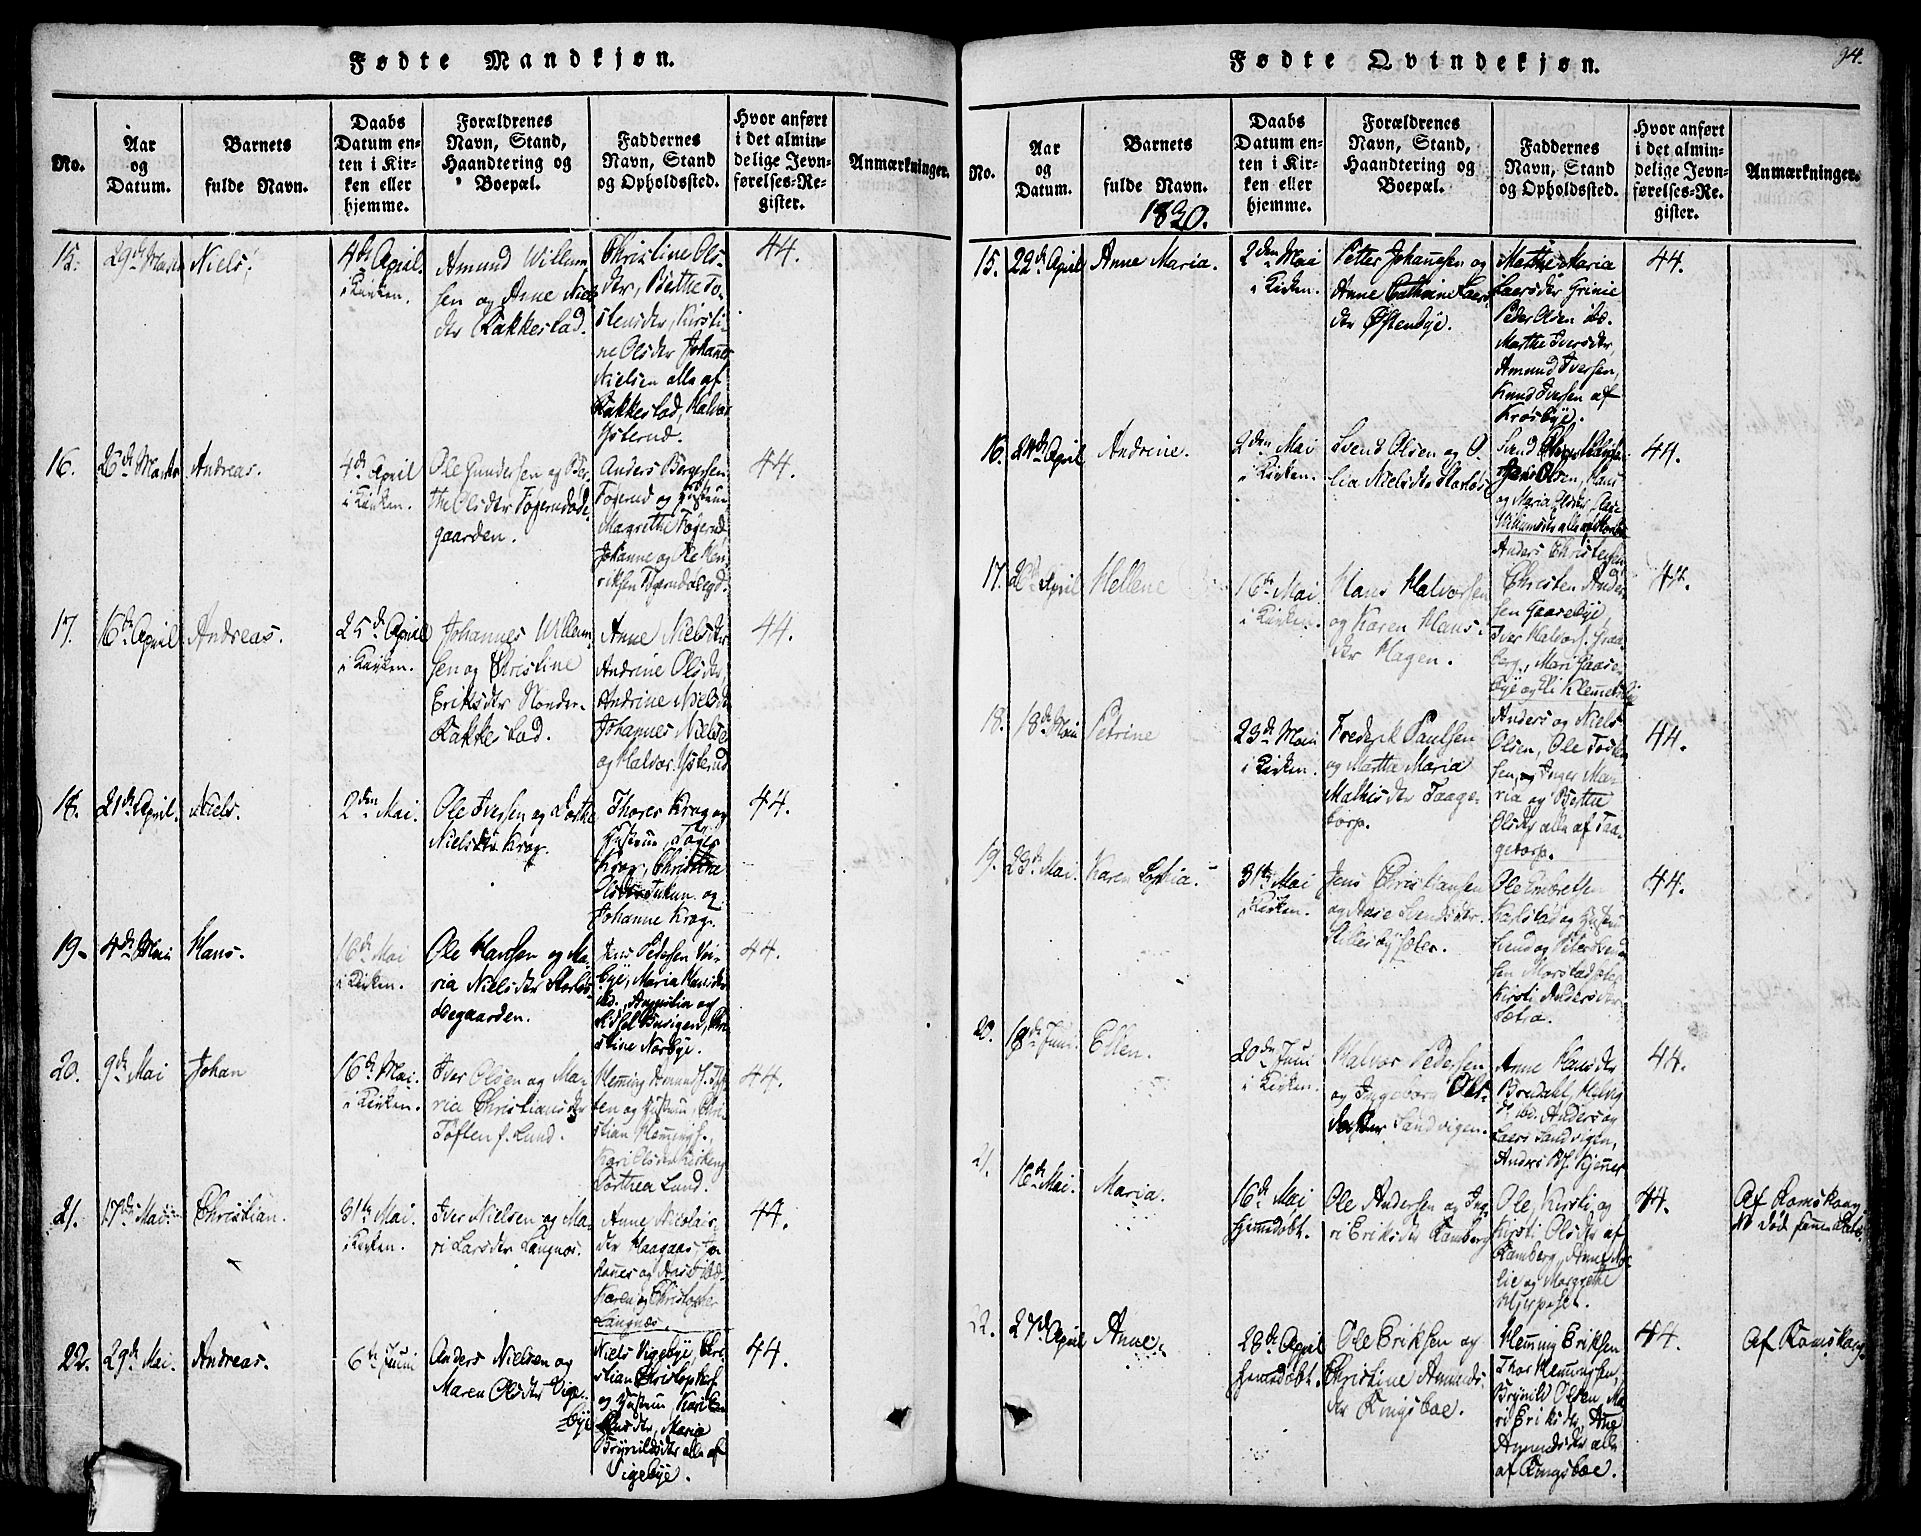 Fødte Mandkjøn.
No.
Aar
og
Datum.
Barnets
fulde Navn.
Daabs
Datum en-
ten i Kir-
ken eller
hjemme.
Forældrenes
Navn, Stand,
Haandtering og
Boepæl.
Faddernes
Navn, Stand
og Opholdssted.
Hvor anført
i det almin-
delige Jevn-
førelses-Re-
gister.
Anmærkninger.
15.
29de Marts
Niels.
4de April.
i Kirken.
Amund Willum-
sen og Anne Niels-
der Rakkestad.
Christine Ols-
der, Berthe To-
stensder, Kirsti-
ne Olsder, Johannes
Nielsen alle af
Rakkestad, Halvor
Ysterud.
44.
16.
26de Marts
Andreas.
4de April
i Kirken.
Ole Gundersen og Ber-
the Olsder
gaarden.
Anders Bergersen
og Hustrue
Magrethe
Johanne og Ole Hen-
riksen
44.
17.
16de April
Andreas.
25de April
i Kirken.
Johannes Willum-
sen og Christine
Eriksder Nordre-
Rakkestad.
Anne Nielsder
Andrine Olsder,
Andrine Nielsder
Johannes Nielsen
og Halvor Ysterud
44.
18.
21de April.
Niels.
2den Mai.
Ole Iversen og Dorthe
Nielsder Krog.
Thores Krog og
Hustrue,
Krog, Christine
Olsder og
Johanne Krog.
44.
19.
4de Mai
Hans.
16de Mai
i Kirken.
Ole Hansen og Ma-
ria Nielsder Storløs-
ødegaarden.
Jens Pedersen Vei-
bye, Maria Hansder
ibd., og
Chri-
stine Norbye.
44.
20.
9de Mai
Johan
16de Mai.
i Kirken.
Iver Olsen og Ma-
ria Christiansder
Toften f. Lund.
Hemming Amundsf. Tof-
ten og Hustrue, Chri-
stian Hemmingsf.,
Kari Olsder
Dorthea Lund.
44.
21.
17de Mai
Christian.
31te Mai.
i Kirken.
Iver Nielsen og Ma-
ri Larsder Langnæs.
Anne Nicolais-
der Haagaas, Jo-
hannes og Aase ibd.
Karen og Christopher
Langnæs.
44.
22.
29de Mai.
Andreas.
6te Juni
Anders Nielsen og
Maren Olsder Vige-
bye
Niels Vigebye, Chri-
stian Christophersf.
og Hustrue, Kari
Maria
Brynildsder alle af
Vigebye.
44.
Fødte Qvindekjøn.
94.
No.
Aar
og
Datum.
Barnets
fulde Navn.
1830.
Daabs
Datum en-
ten i Kir-
ken eller
hjemme.
Forældrenes
Navn, Stand,
Haandtering og
Boepæl.
Faddernes
Navn, Stand
og Opholdssted.
Hvor anført
i det almin-
delige Jevn-
førelses-Re-
gister.
Anmærkninger.
15.
22de April
Anne Maria.
2den Mai
i Kirken.
Petter Johannesen og
Anne Cathrine Laers-
der Østenbye.
Mathe Maria
Laersder Grinie
Peder Olsen ibd.
Marthe Iversder,
Amund Iversen,
Knud Iversen af
Krosbye.
44.
16.
24de April
Andrine.
2den Mai
i Kirken.
Svend Olsen og O-
lia Nielsder Storløs
Svend
Olsen, Hans
og Maria Olsder,
44.
17.
26de April
Hellene
16de Mai
i Kirken.
Hans Halvorsen
og Karen Hans-
der Hagen.
Anders Christensen
Christen Ander-
sen Gaasebye,
Iver Halvorsf.
berg, Mari Gaase-
bye og
44.
18.
18de Mai
Petrine
23de Mai
i Kirken.
Frederik Paulsen
og Martha Maria
Mathisder Taage-
torp.
Anders og Niels
Olsen, Ole
sen, og Inger Ma-
ria og Berthe
Olsder alle af Taa-
getorp.
44.
19.
23de Mai.
Karen Sophia.
31te Mai
i Kirken.
Jens Christiansen
og Aase Svendsder
Ole Embretsen
Karlstad og Hustrue
Svend og Peter Svend-
sen
Kirsti Andersder
44.
20.
18de Juni
Ellen.
20de Juni
i Kirken.
Halvor Pedersen
og Ingeborg Ols-
datter Sandvigen.
Anne Hansder
Bredahl,
ibd. Anders og
Laers Sandvigen,
Anders
44.
21.
16de Mai.
Maria.
16de Mai
hjemmedøbt.
Ole Andersen og Ing-
ri Eriksder Ramberg
Ole, Kirsti og
Kirsti Olsder af
Ramberg, Anne Ma-
lie og Margrethe
44.
Af Romskoug
22.
27de April
Anne.
28de April
hjemmedøbt.
Ole Eriksen og
Christine Amunds-
der Kingsboe.
Hemming Eriksen
Thor Hemmingsen,
Brynild Olsen, Ma-
ri Eriksder, Anne
Amundsder alle
af Kingsboe.
44.
Af Romskoug